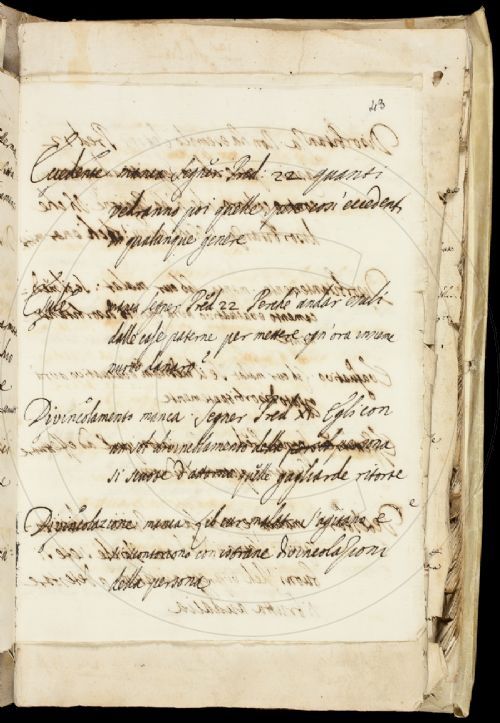 43
Eccedente manca Segner. Pred. 22 quanti
vedranno poi quelle cosi eccedenti
in qualunque genere
Esule manca Segner Pred 22 Perche andar esuli
dalle case paterne per mettere ogn'ora insieme
nuovo danaro?
Divincolamento manca. Segner Pred XI Egli con
un divincolamento della persona
si scuote d'attorno quelle gagliarde ritorte
Divincolazione manca s'agitava, e
si scontorceva con istrane divincolazioni
della persona